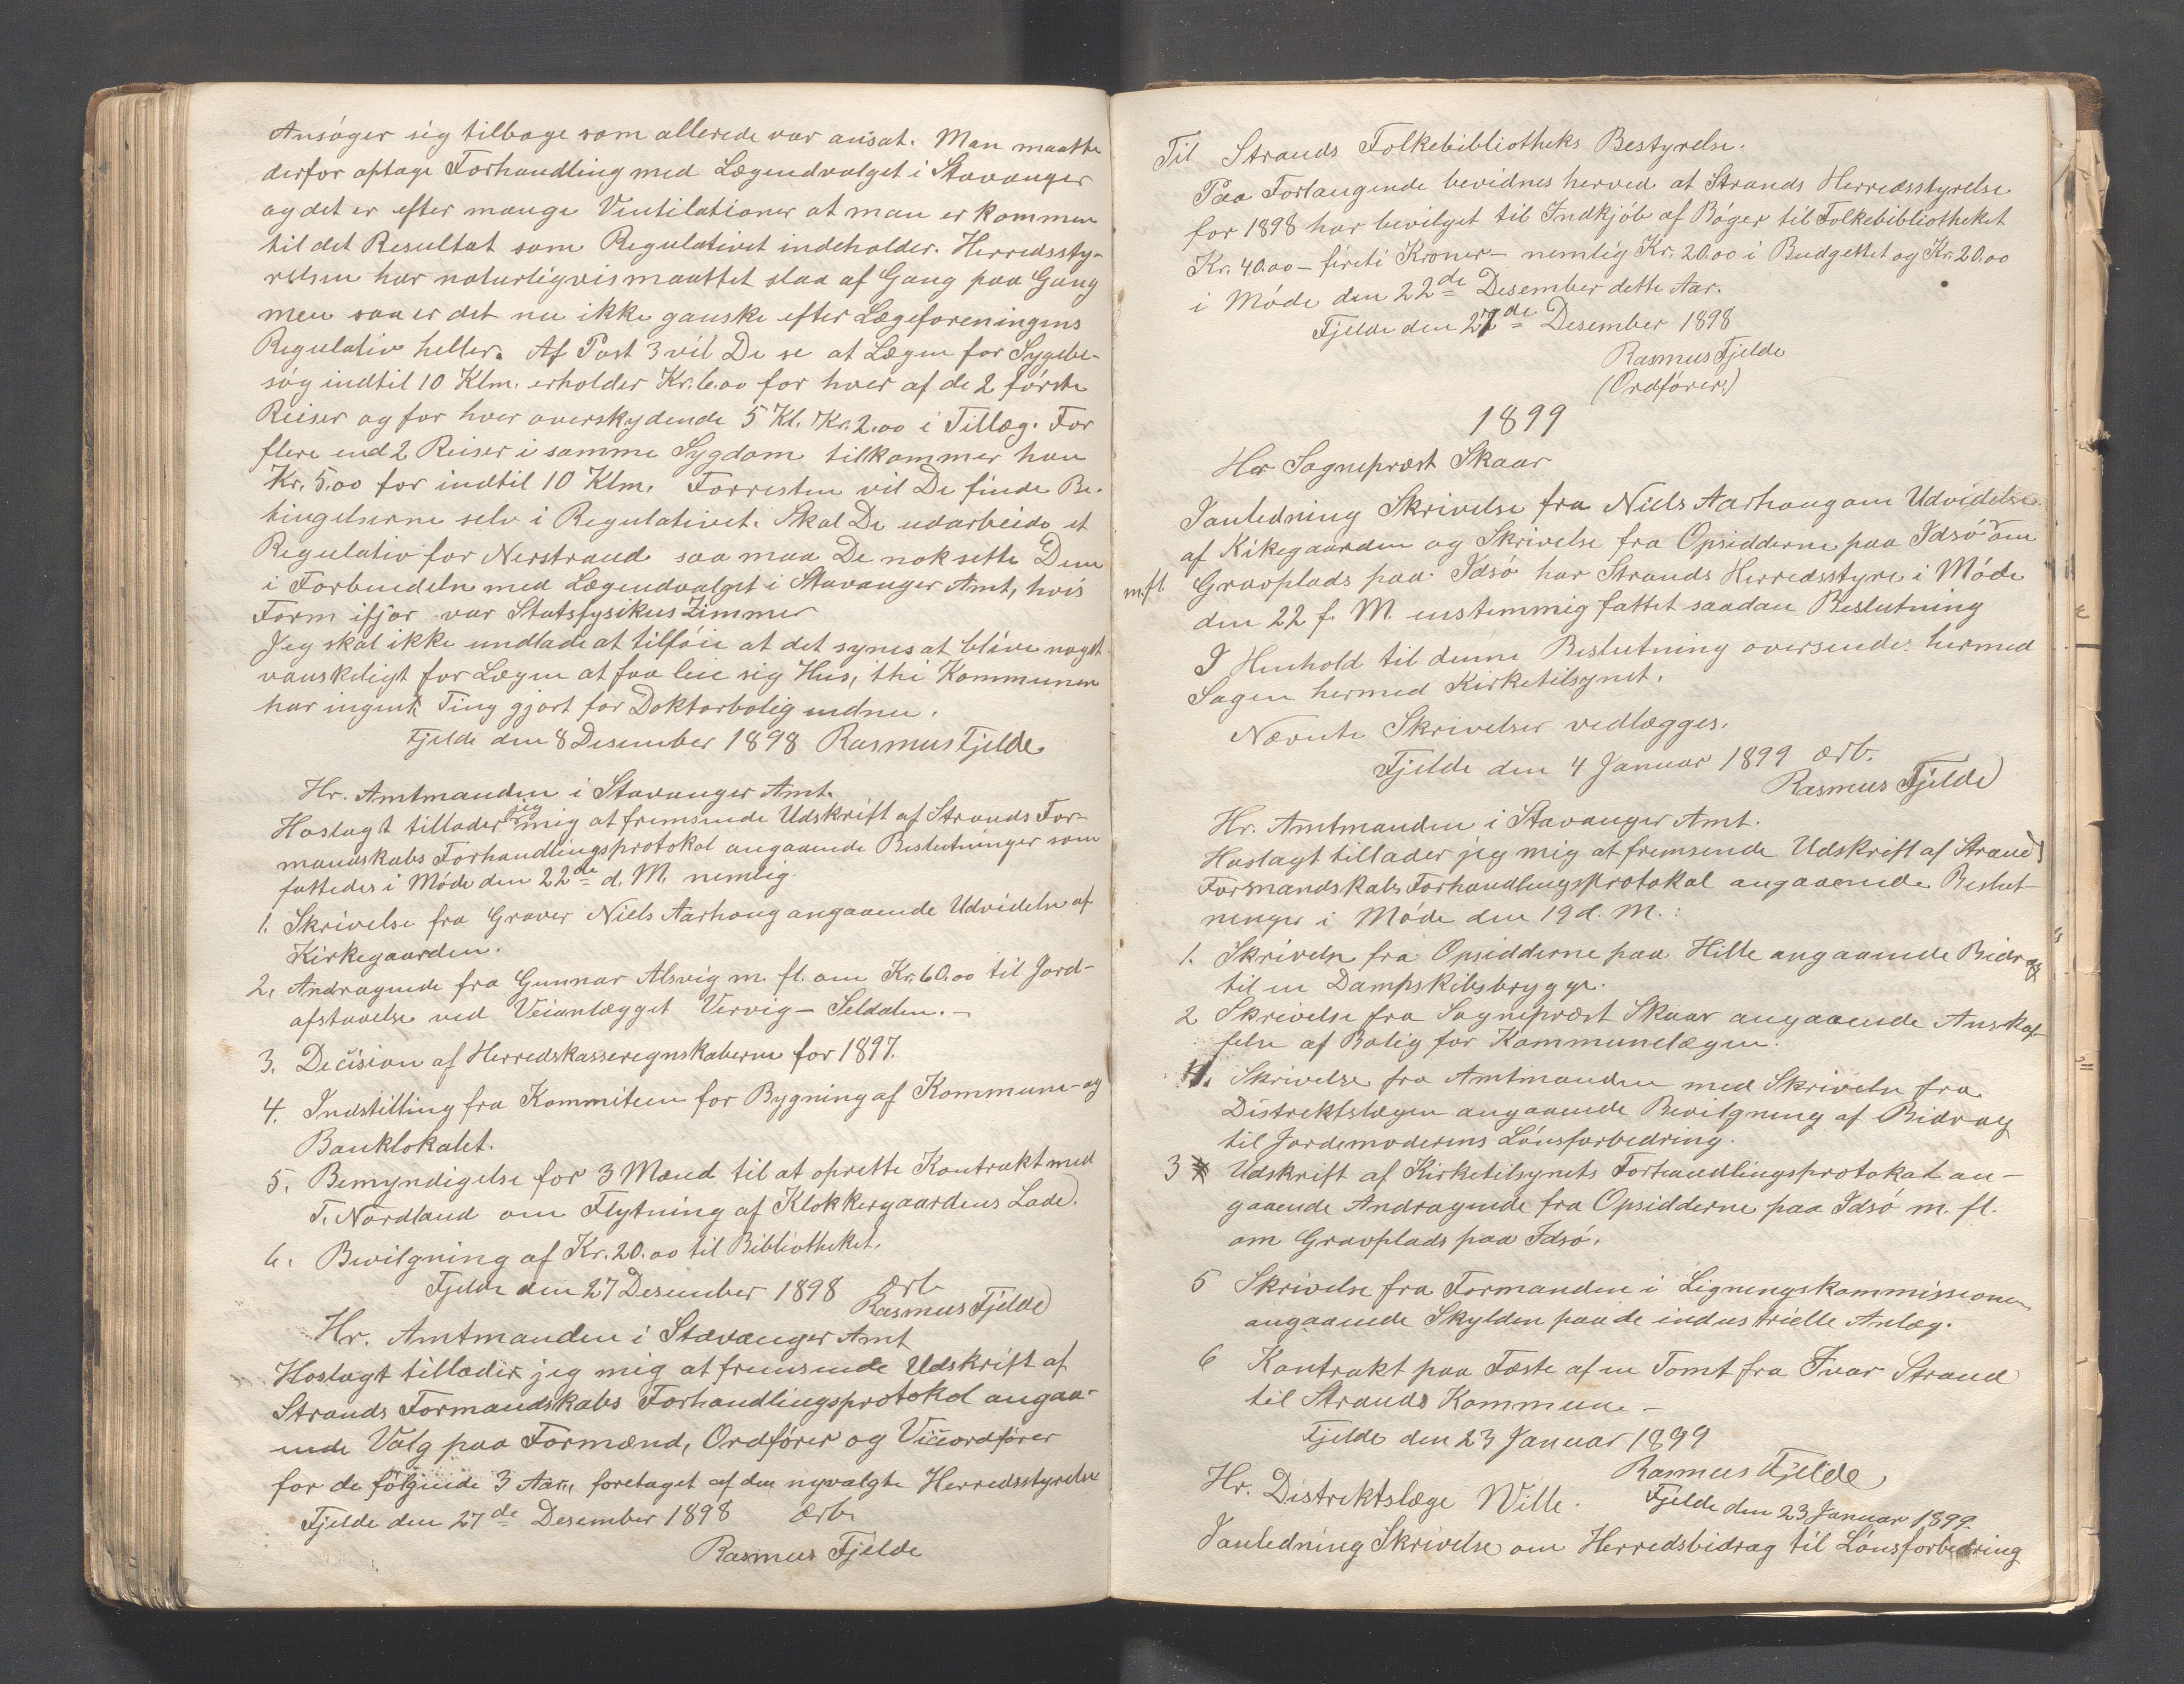 Ansøger sig tilbage som allerede var ansat. Man maatte
derfor optage Forhandling med Lægeudvalget i Stavanger
og det er efter mange Ventilationer at man er kommen
til det Resultat som Regulativet indeholder. Herredssty-
relsen har naturligvis maattet slaa af Gang paa Gang
men saa er det nu ikke ganske efter Lægeforeningens
Regulativ heller. Af Post 3 vil De se at Lægen for Sygebe-
søg indtil 10 Klm. erholder Kr. 6.00 for hver af de 2 første
Reiser og for hver overskydende 5 Kl. Kr. 2.00 i Tillæg. For
flere end 2 Reiser i samme Sygdom tilkommer han
Kr. 5.00 for indtil 10 Klm. Forresten vil De finde Be-
tingelserne selv i Regulativet. Skal De udarbeide et
Regulativ for Nerstrand saa maa De nok sette Dem
i Forbindelse med Lægeudvalget i Stavanger Amt, hvis
Form ifjor var Statsfysikus Zimmer
Jeg skal ikke undlade at tilføie at det synes at blive noget
vanskeligt for Lægen at faa leie sig Hus, thi Kommunen
har ingent Ting gjort for Doktorbolig endnu.
Fjelde den 8 Desember 1898 Rasmus Fjelde
Hr. Amtmanden i Stavanger Amt.
Hoslagt tillader jeg mig at fremsende Udskrift af Strands For-
mandskabs Forhandlingsprotokol angaaende Beslutninger som
fattedes i Møde den 22de d. M. nemlig
1. Skrivelse fra Graver Niels Aarhoug angaaende Udvidelse af
Kirkegaarden.
2. Andragende fra Gunnar Alsvig m. fl. om Kr. 60.00 til Jord-
afstaaelse ved Veianlægget Vervig - Seldalen. -
3. Decision af Herredskasseregnskaberne for 1897.
4. Indstilling fra Kommiteen for Bygning af Kommune- og
Banklokalet.
5. Bemyndigelse for 3 Mænd til at oprette Kontrakt med
T. Nordland om Flytning af Klokkergaardens Lade.
6. Bevilgning af Kr. 20.00 til Bibliotheket.
Fjelde den 27 Desember 1898 ærb.
Rasmus Fjelde
Hr. Amtmanden i Stavanger Amt
Hoslagt tillader jeg mig at fremsende Udskrift af
Strands Formandskabs Forhandlingsprotokol angaa-
ende Valg paa Formænd, Ordfører og Viceordfører
for de følgende 3 Aar, foretaget af den nyvalgte Herredsstyrelse
Fjelde den 27de Desember 1898 ærb.
Rasmus Fjelde
Til Strands Folkebibliotheks Bestyrelse.
Paa Forlangende bevidnes herved at Strands Herredsstyrelse
for 1898 har bevilget til Indkjøb af Bøger til Folkebibliotheket
Kr. 40.00 - fireti Kroner - nemlig Kr. 20.00 i Budgettet og Kr. 20.00
i Møde den 22de Desember dette Aar.
Fjelde den 27de Desember 1898
Rasmus Fjelde
(Ordfører)
1899
Hr Sognepræst Skaar
Ianledning Skrivelse fra Niels Aarhoug om Udvidelse
af Kikegaarden og Skrivelse fra Opsidderne paa Idsø om
m. fl. Gravplads paa Idsø har Strands Herredsstyre i Møde
den 22 f. M. enstemmig fattet saadan Beslutning
I Henhold til denne Beslutning oversendes hermed
Sagen hermed Kirketilsynet.
Nævnte Skrivelser vedlægges.
Fjelde den 4 Januar 1899 ærb.
Rasmus Fjelde
Hr. Amtmanden i Stavanger Amt.
Hoslagt tillader jeg mig at fremsende Udskrift af Strand
Formandskabs Forhandlingsprotokol angaaende Beslut-
ninger i Møde den 19 d. M.:
1. Skrivelse fra Opsidderne paa Hille angaaende Bidrag
til en Dampskibsbrygge.
2 Skrivelse fra Sognepræst Skaar angaaende Anskaf-
felse af Bolig for Kommunelægen.
4. Skrivelse fra Amtmanden med Skrivelse fra
Distrektslægen angaaende Bevilgning af Bidrag
til Jordemoderens Lønsforbedring.
3 Udskrift af Kirketilsynets Forhandlingsprotokol an-
gaaende Andragende fra Opsidderne paa Idsø m. fl.
om Gravplads paa Idsø.
5 Skrivelse fra Formanden i Ligningskommissionen
angaaende Skylden paa de industrielle Anlæg.
6 Kontrakt paa Fæste af en Tomt fra Ivar Strand
til Strands Kommune -
Fjelde den 23 Januar 1899
Rasmus Fjelde
Hr. Distriktslæge Wille. Fjelde den 23 Januar 1899.
Ianledning Skrivelse om Herredsbidrag til Lønsforbedring